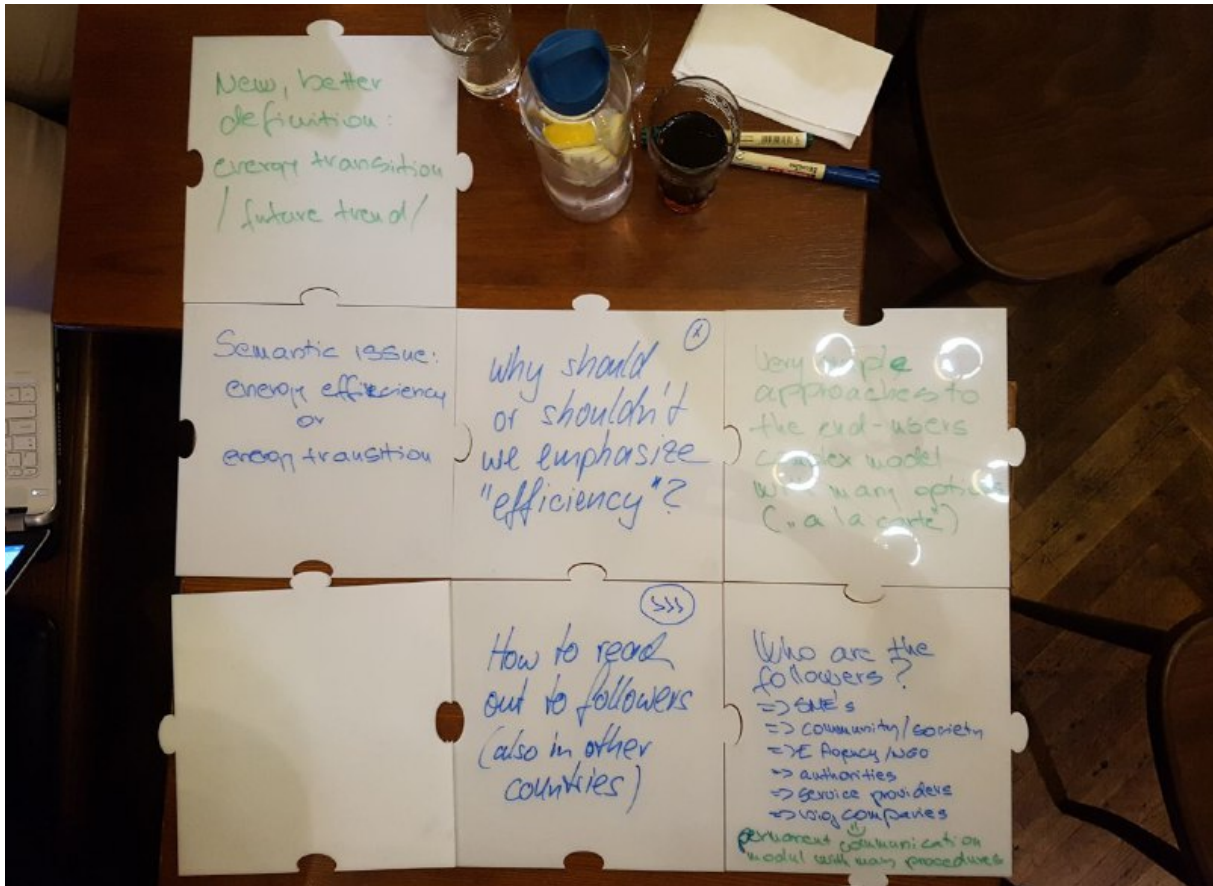 New, better
definition:
energy transition
/ future trend /
Semantic issue:
energy efficiency
or
energy transition
why should
or shouldn't
we emphasize
"efficiency"?
Very simple
approaches to
the end-users
complex model
with many options
("a la carte")
How to reach
out to followers
(also in other
countries)
Who are the
followers?
=> SME's
=> community/society
=> E Agency/NGO
=> authorities
=> service providers
=> big companies
permanent communication
modul with many procedures